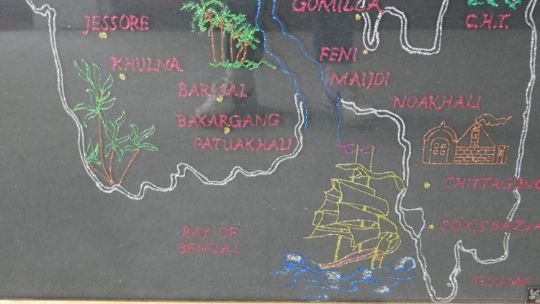 GOMILLA
C.H.T.
JESSORE
FENI
KHULNA
MAIJDI
BARISAL
NOAKHALI
BAKARGANG
PATUAKHALI
CHITTAGONG
COKSBAZA
BAY OF
BENGAL
TEKNAF